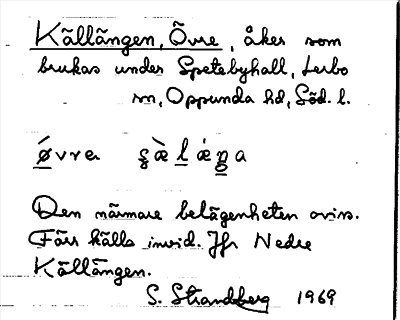 Källängen, Övre, åker som
brukas under Spetebyhall, Lerbo
sn, Oppunda hd, Söd. l.
ǿvrer ʂæ̀lǽŋa
Den närmare belägenheten oviss.
Förr källa invid. Jfr Nedre
Källängen.
S. Strandberg 1969